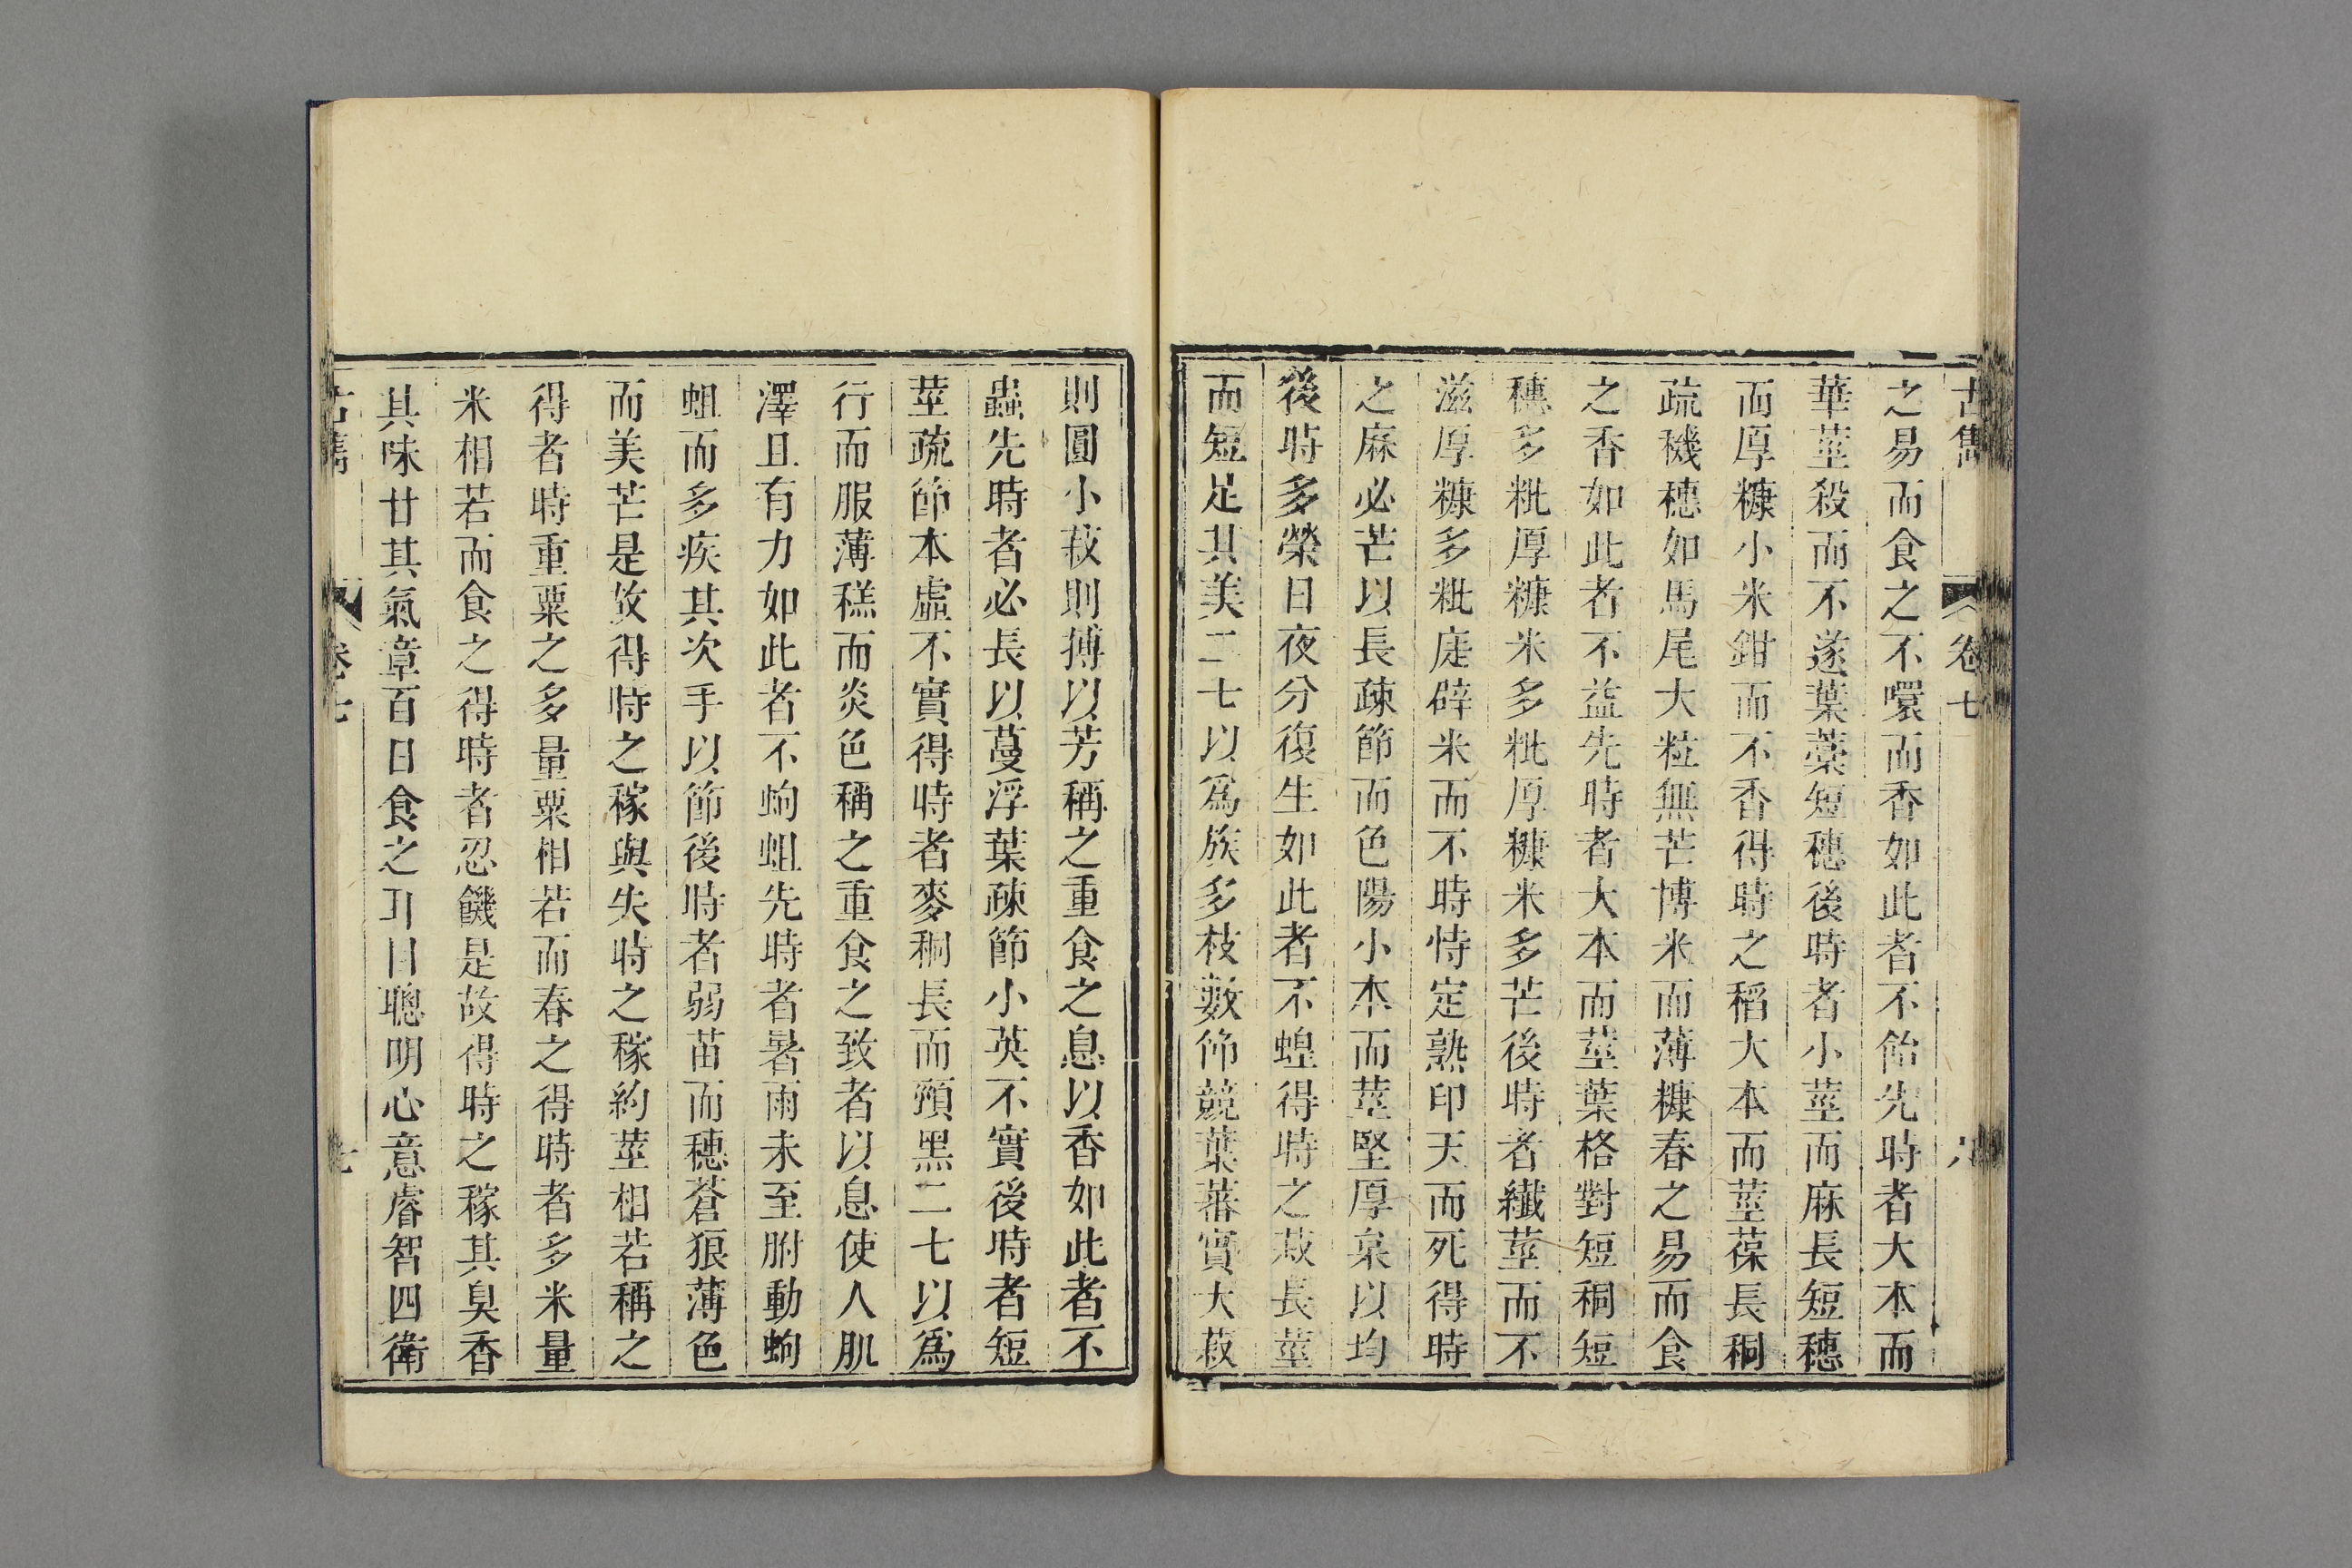 古雋
卷七
之易而食之不噮而香如此者不飴先時者大本而
華莖殺而不遂葉藁短穗後時者小莖而麻長短穗
而厚糠小米鉗而不香得時之稻大本而莖葆長秱
疏穖穗如馬尾大粒無芒博米而薄糠舂之易而食
之香如此者不益先時者大本而莖葉格對短秱短
穗多粃厚糠米多粃厚糠米多芒後時者纖莖而不
滋厚糠多粃庢辟米而不時恃定熟卬天而死得時
之麻必芒以長疎節而色陽小本而莖堅厚枲以均
後時多榮日夜分復生如此者不蝗得時之菽長莖
而短足其美二七以爲族多枝數節競葉蕃實大菽
則圓小菽則摶以芳稱之重食之息以香如此者不
蟲先時者必長以蔓浮葉疎節小英不實後時者短
莖疏節本虛不實得時者麥秱長而頸黑二七以爲
行而服薄穚而炎色稱之重食之致者以息使人肌
澤且有力如此者不蚼蛆先時者暑雨未至胕動蚼
蛆而多疾其次手以節後時者弱苗而穗蒼狼薄色
而美芒是故得時之稼與失時之稼約莖相若稱之
得者時重粟之多量粟相若而舂之得時者多米量
米相若而食之得時者忍饑是故得時之稼其臭香
其味甘其氣章百日食之耳目聰明心意睿智四衛
古雋
卷七
七